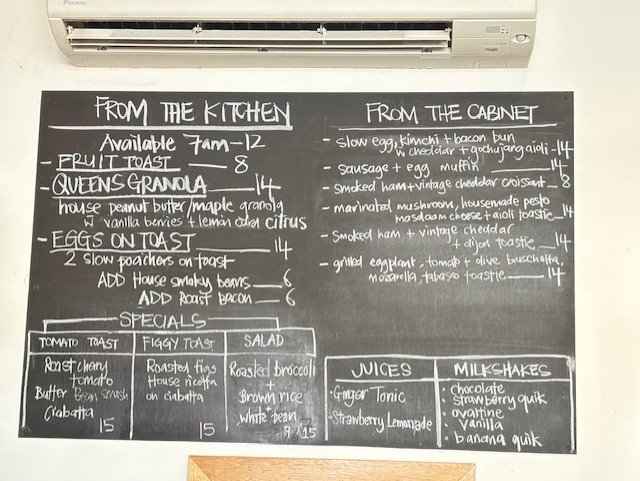 DAIKIN
FROM THE KITCHEN
Available 7am-12
- FRUIT TOAST — 8
- QUEENS GRANOLA — 14
house peanut butter/maple granola
w vanilla berries + lemon curd citrus
- EGGS ON TOAST — 14
2 slow poachers on toast
ADD House smoky beans — 6
ADD Roast Bacon — 6
SPECIALS
TOMATO TOAST
Roast cherry
tomato
Butter Bean smash
Ciabatta
15
FIGGY TOAST
Roasted figs
House ricotta
on ciabatta
15
SALAD
Roasted broccoli
+
Brown rice
+
white bean
9 / 15
FROM THE CABINET
- slow egg, kimchi + bacon bun
w cheddar + gochujang aioli - 14
- sausage + egg muffin — 14
- smoked ham + vintage cheddar croissant — 8
- marinated mushroom, housemade pesto
masdaam cheese + aioli toastie — 14
- smoked ham + vintage cheddar
+ dijon toastie — 14
- grilled eggplant, tomato + olive buschetta,
mozarella, tabasco toastie — 14
JUICES
· Ginger Tonic
· Strawberry Lemonade
MILKSHAKES
· chocolate
· strawberry quik
· ovaltine
· vanilla
· banana quik